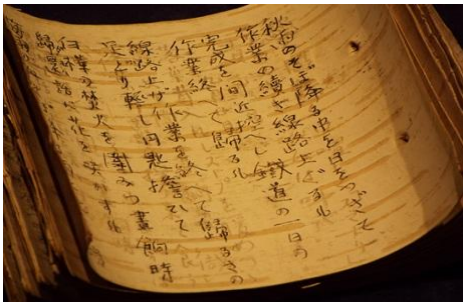 秋雨のそぼ降る中を日をつぎて
作業の續き線路上げする
完成を間近に控へし鐵道の一日の
作業終へて歸る
線路上げ作業を終へて歸るさの
足どり軽し円匙擔ひて
白樺の焚火を圍み晝餉時
歸還の話に花を咲かする